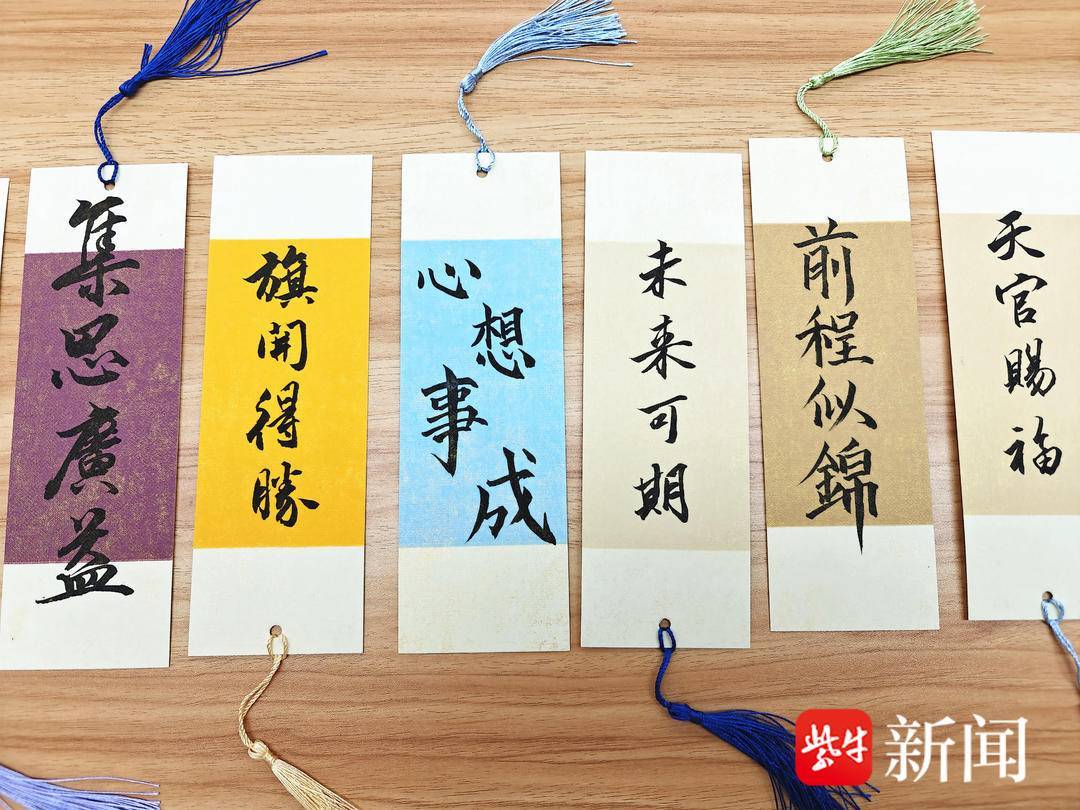 集思廣益
旗開得勝
心想事成
未来可期
前程似錦
天官賜福
紫牛新闻